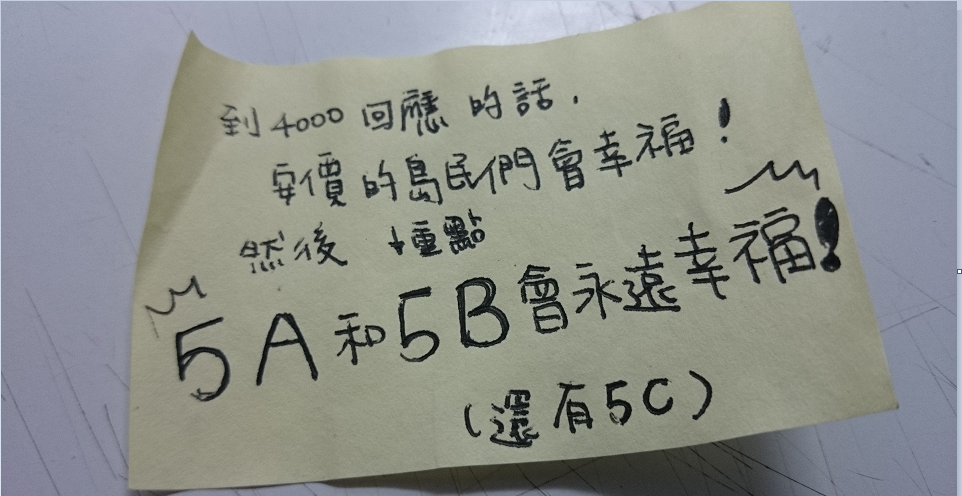 到4000回應的話,
安價的島民們會幸福!
然後 ↓重點
5A和5B會永遠幸福!
(還有5C)